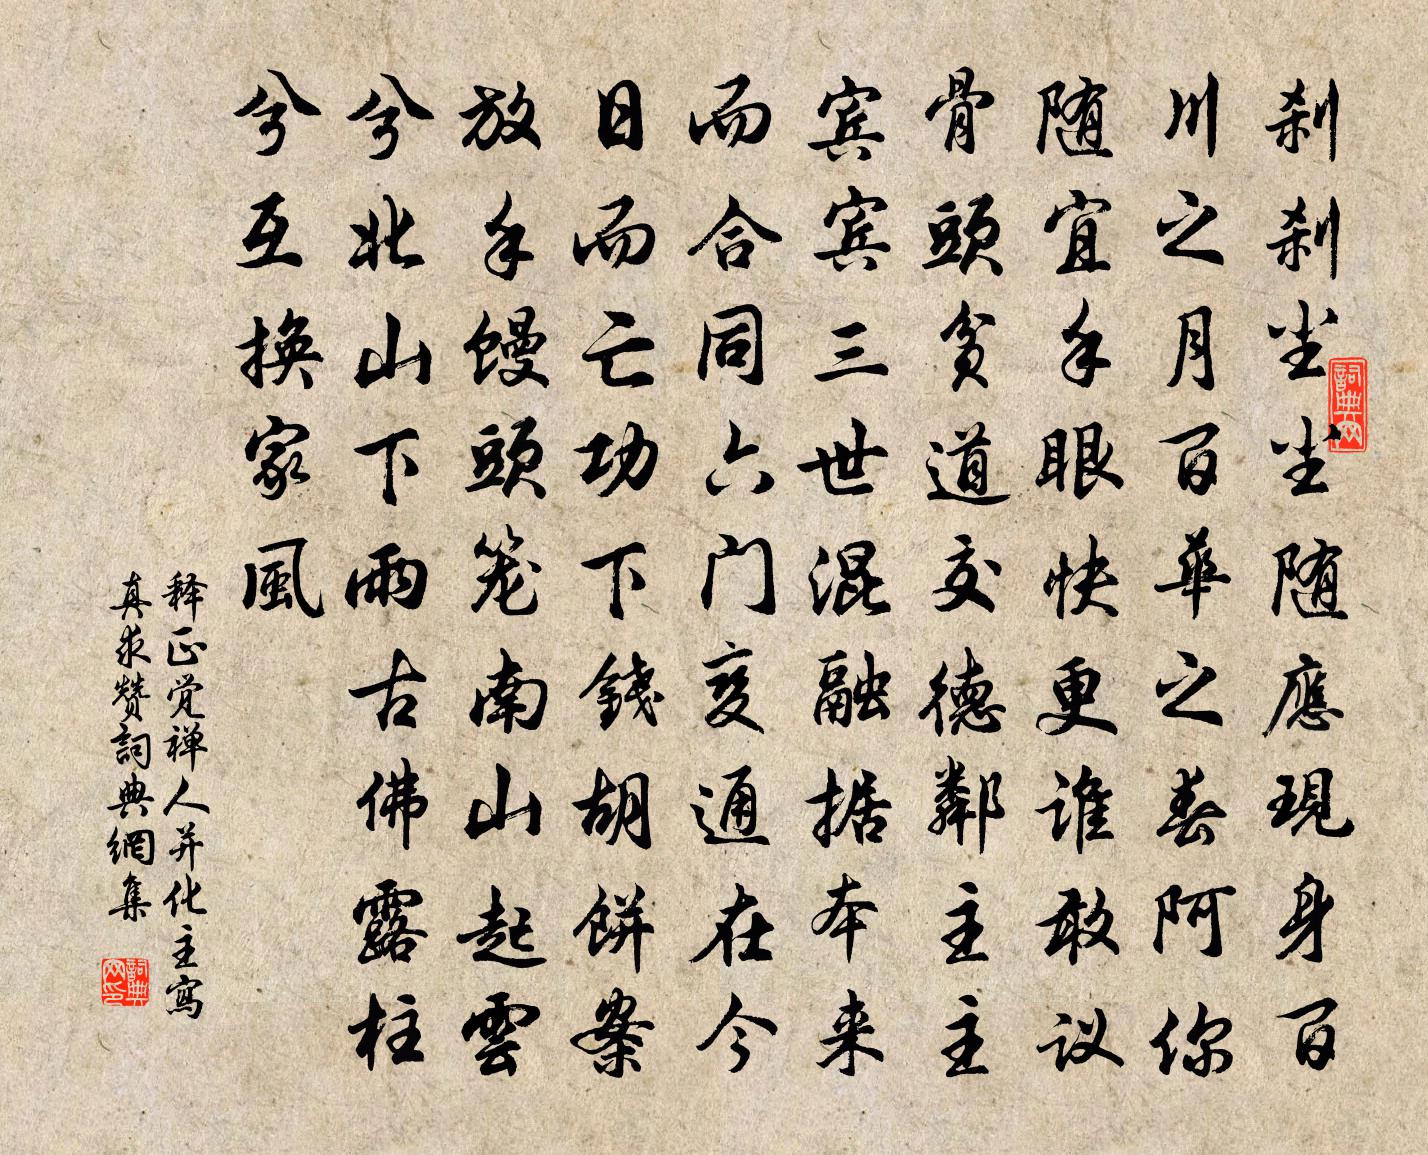 刹刹尘尘随應現身百
川之月百華之春阿你
随宜手眼快更谁敢议
骨頭贫道交德鄰主主
宾宾三世混融据本来
而合同六门变通在今
日而亡功下錢胡餅案
放手馒頭笼南山起雲
兮北山下雨古佛露柱
兮互换家風
释正觉禅人并化主寫
真求赞詞典網集
詞典网
詞典网印